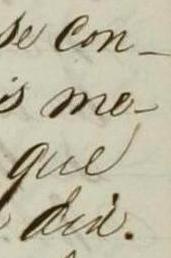 se con-
is me-
que
dia.